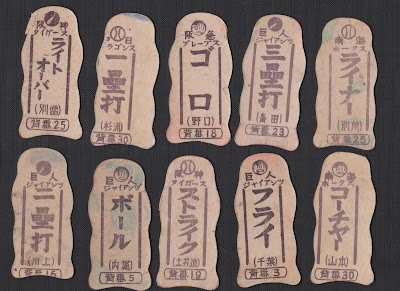 阪神
タイガース
ライト
オーバー
(別當)
背番25
日
ラゴンス
一壘打
(杉浦)
背番30
阪急
ブレーブス
ゴロ
(野口)
背番18
巨人
ジャイアンツ
三壘打
(青田)
背番23
海
ホークス
ライナー
(別所)
背番25
巨人
ジャイアンツ
二壘打
(川上)
背番16
巨人
ジャイアンツ
ボール
(内堀)
背番5
阪神
タイガース
ストライク
(土井垣)
背番19
巨人
ジャイアンツ
フライ
(千葉)
背番3
南海
ホークス
コーチャー
(山本)
背番30